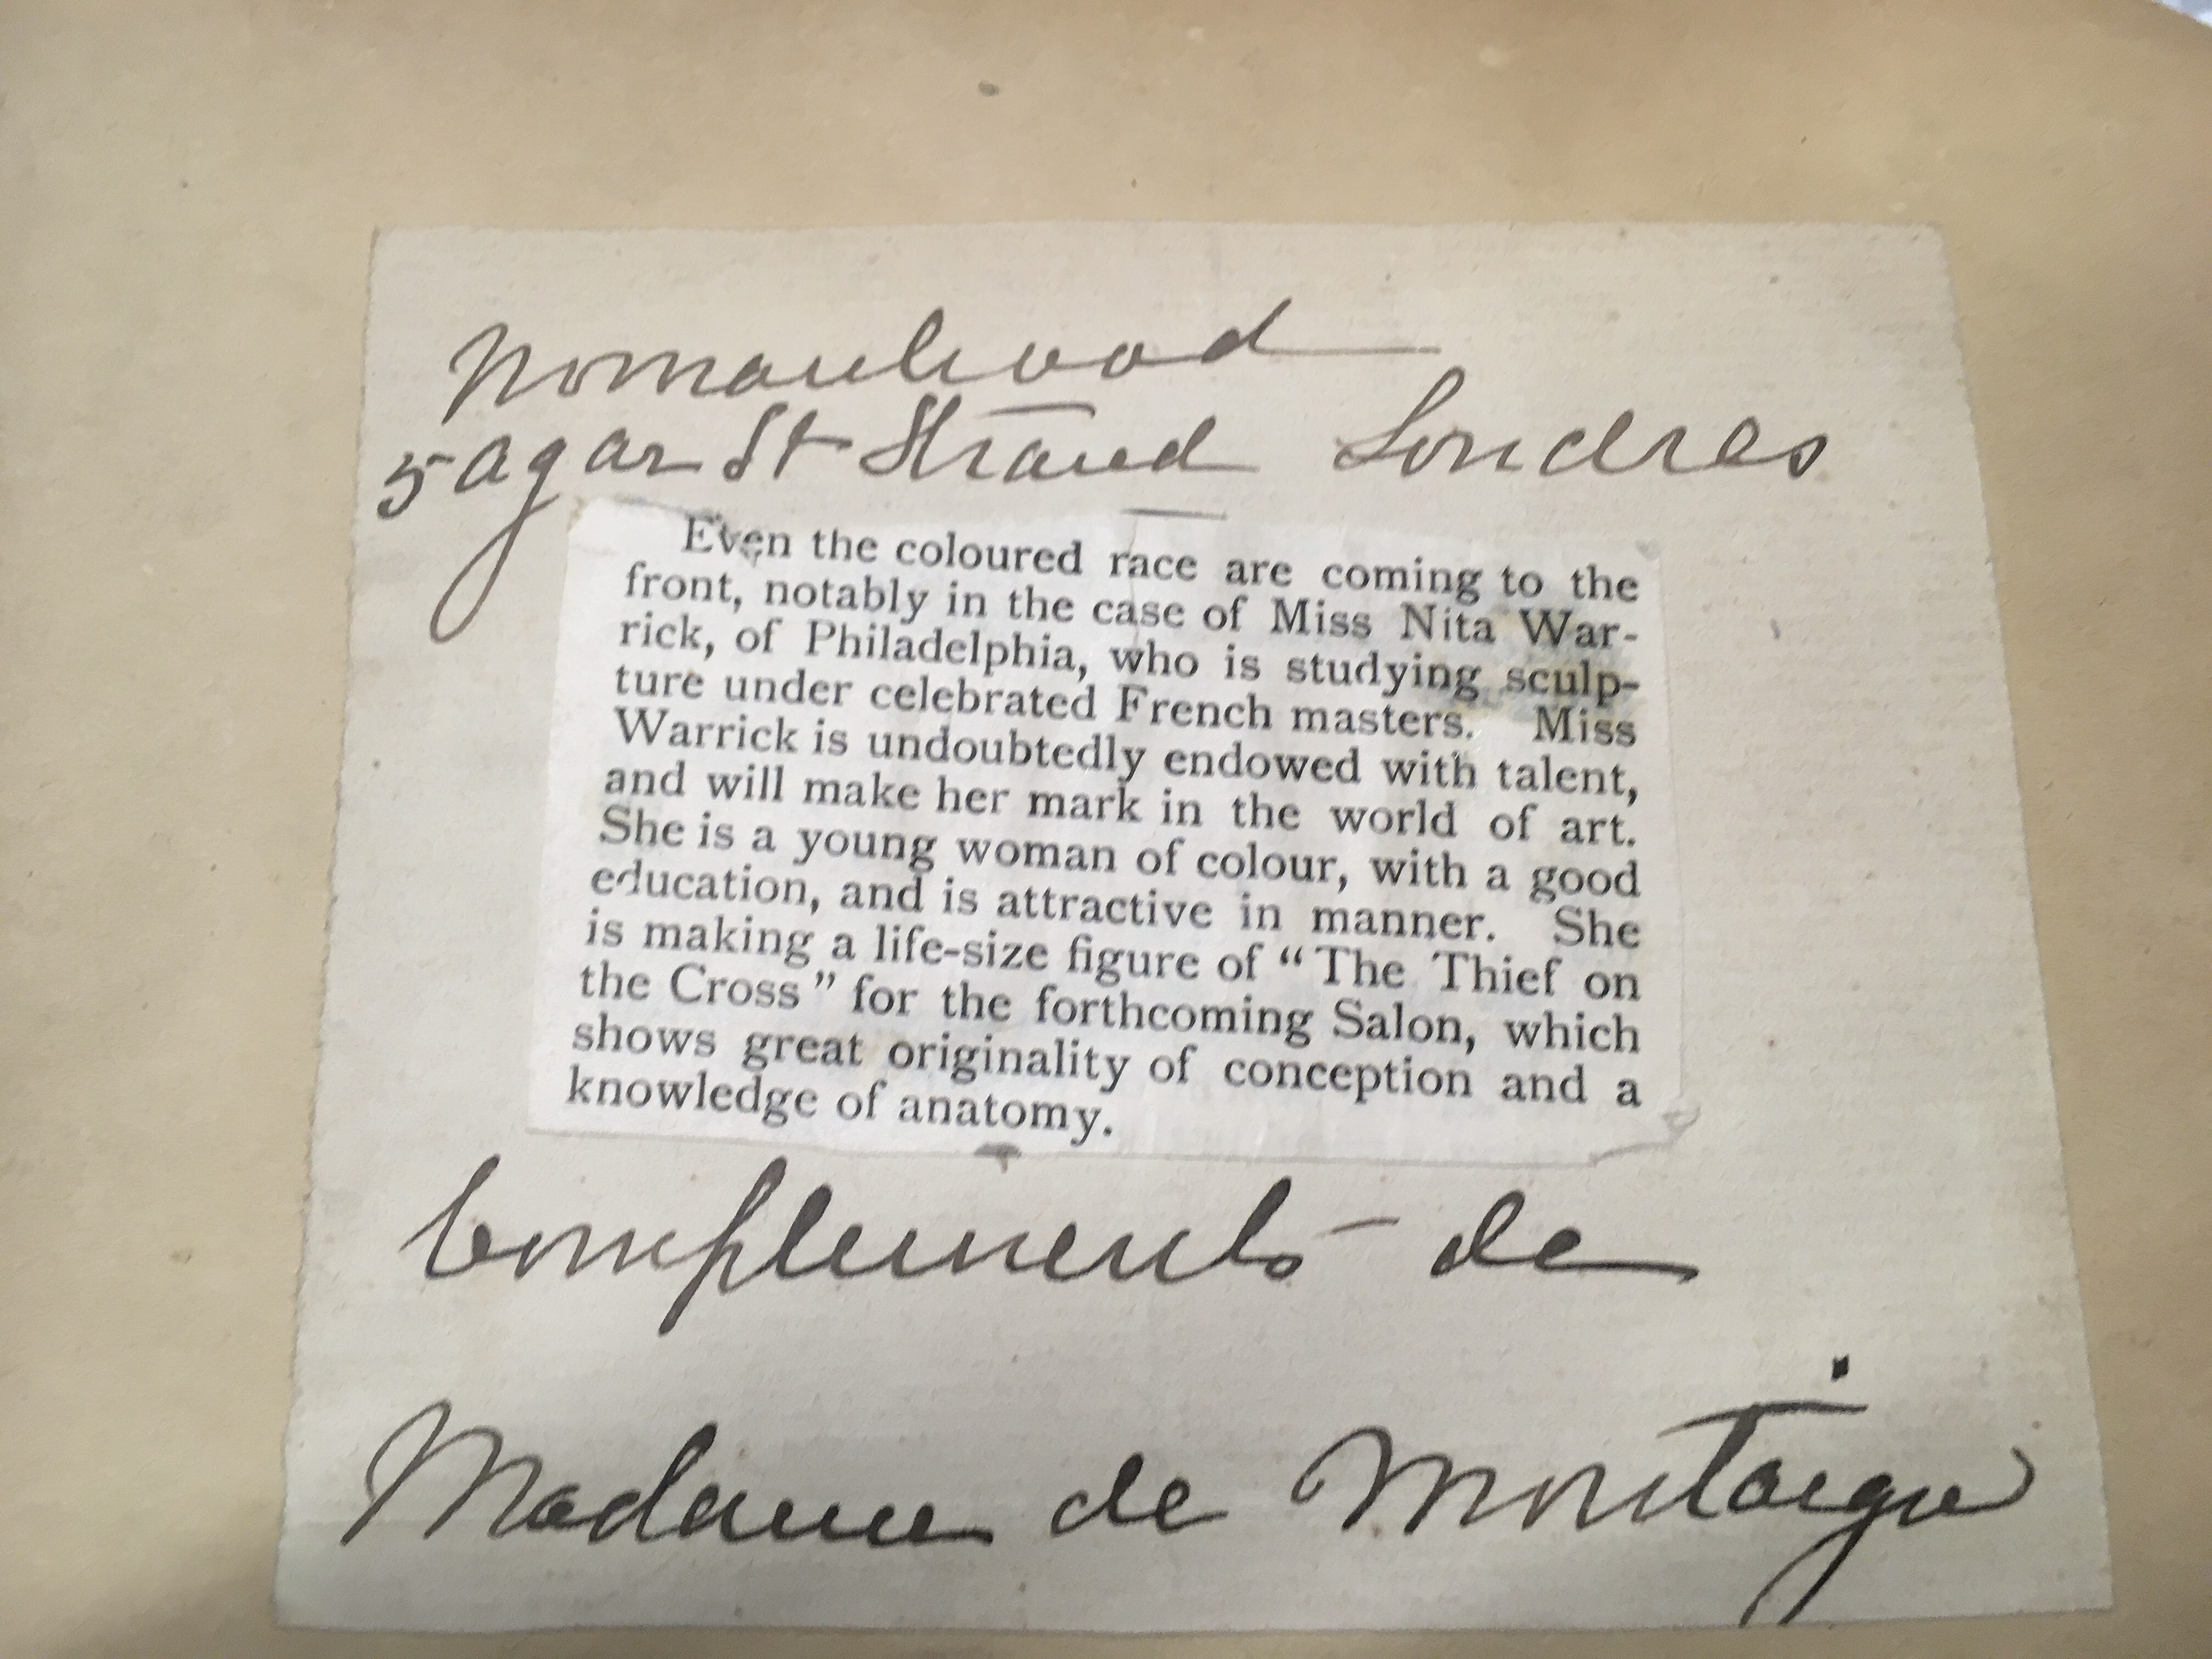 Womanhood
5 Agar St Strand Londres
Even the coloured race are coming to the
front, notably in the case of Miss Nita War-
rick, of Philadelphia, who is studying sculp-
ture under celebrated French masters. Miss
Warrick is undoubtedly endowed with talent,
and will make her mark in the world of art.
She is a young woman of colour, with a good
education, and is attractive in manner. She
is making a life-size figure of “The Thief on
the Cross” for the forthcoming Salon, which
shows great originality of conception and a
knowledge of anatomy.
Compliments de
Madame de Montaigu